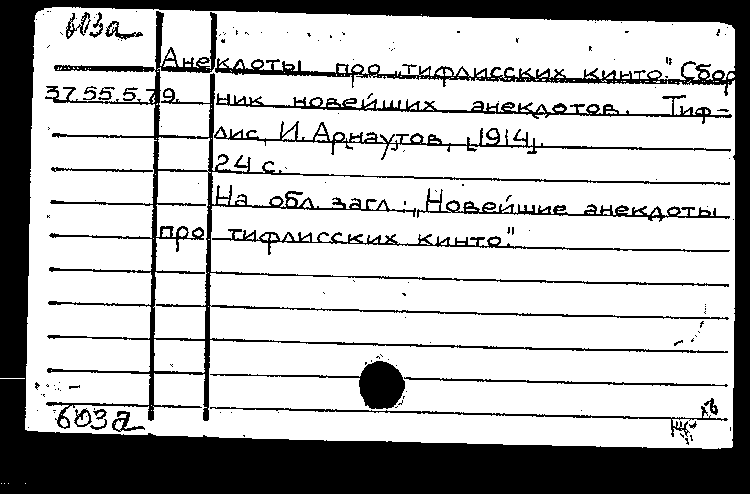 603а
Анекдоты про „тифлисских кинто." Сбор
37.55.5.79. ник новейших анекдотов. Тиф-
лис, И. Арнаутов, [1914].
24 с.
На обл. загл.: „Новейшие анекдоты
про тифлисских кинто."
603а